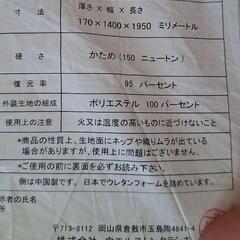 寸法 厚さ × 幅 × 長さ
170×1400×1950 ミリメートル
硬さ かため(150 ニュートン)
復元率 95 パーセント
外装生地の組成 ポリエステル 100パーセント
使用上の注意 火又は温度の高いものに近づけないこと
*商品の性質上、生地面にネップや織りムラが出ている
事がありますが、使用上に問題はございません。
*ご使用の前に裏面を必ずお読み下さい。
側は中国製です。日本でウレタンフォームを詰めています。
示者の氏名
所
〒713-8112 岡山県倉敷市玉島陶4841-4